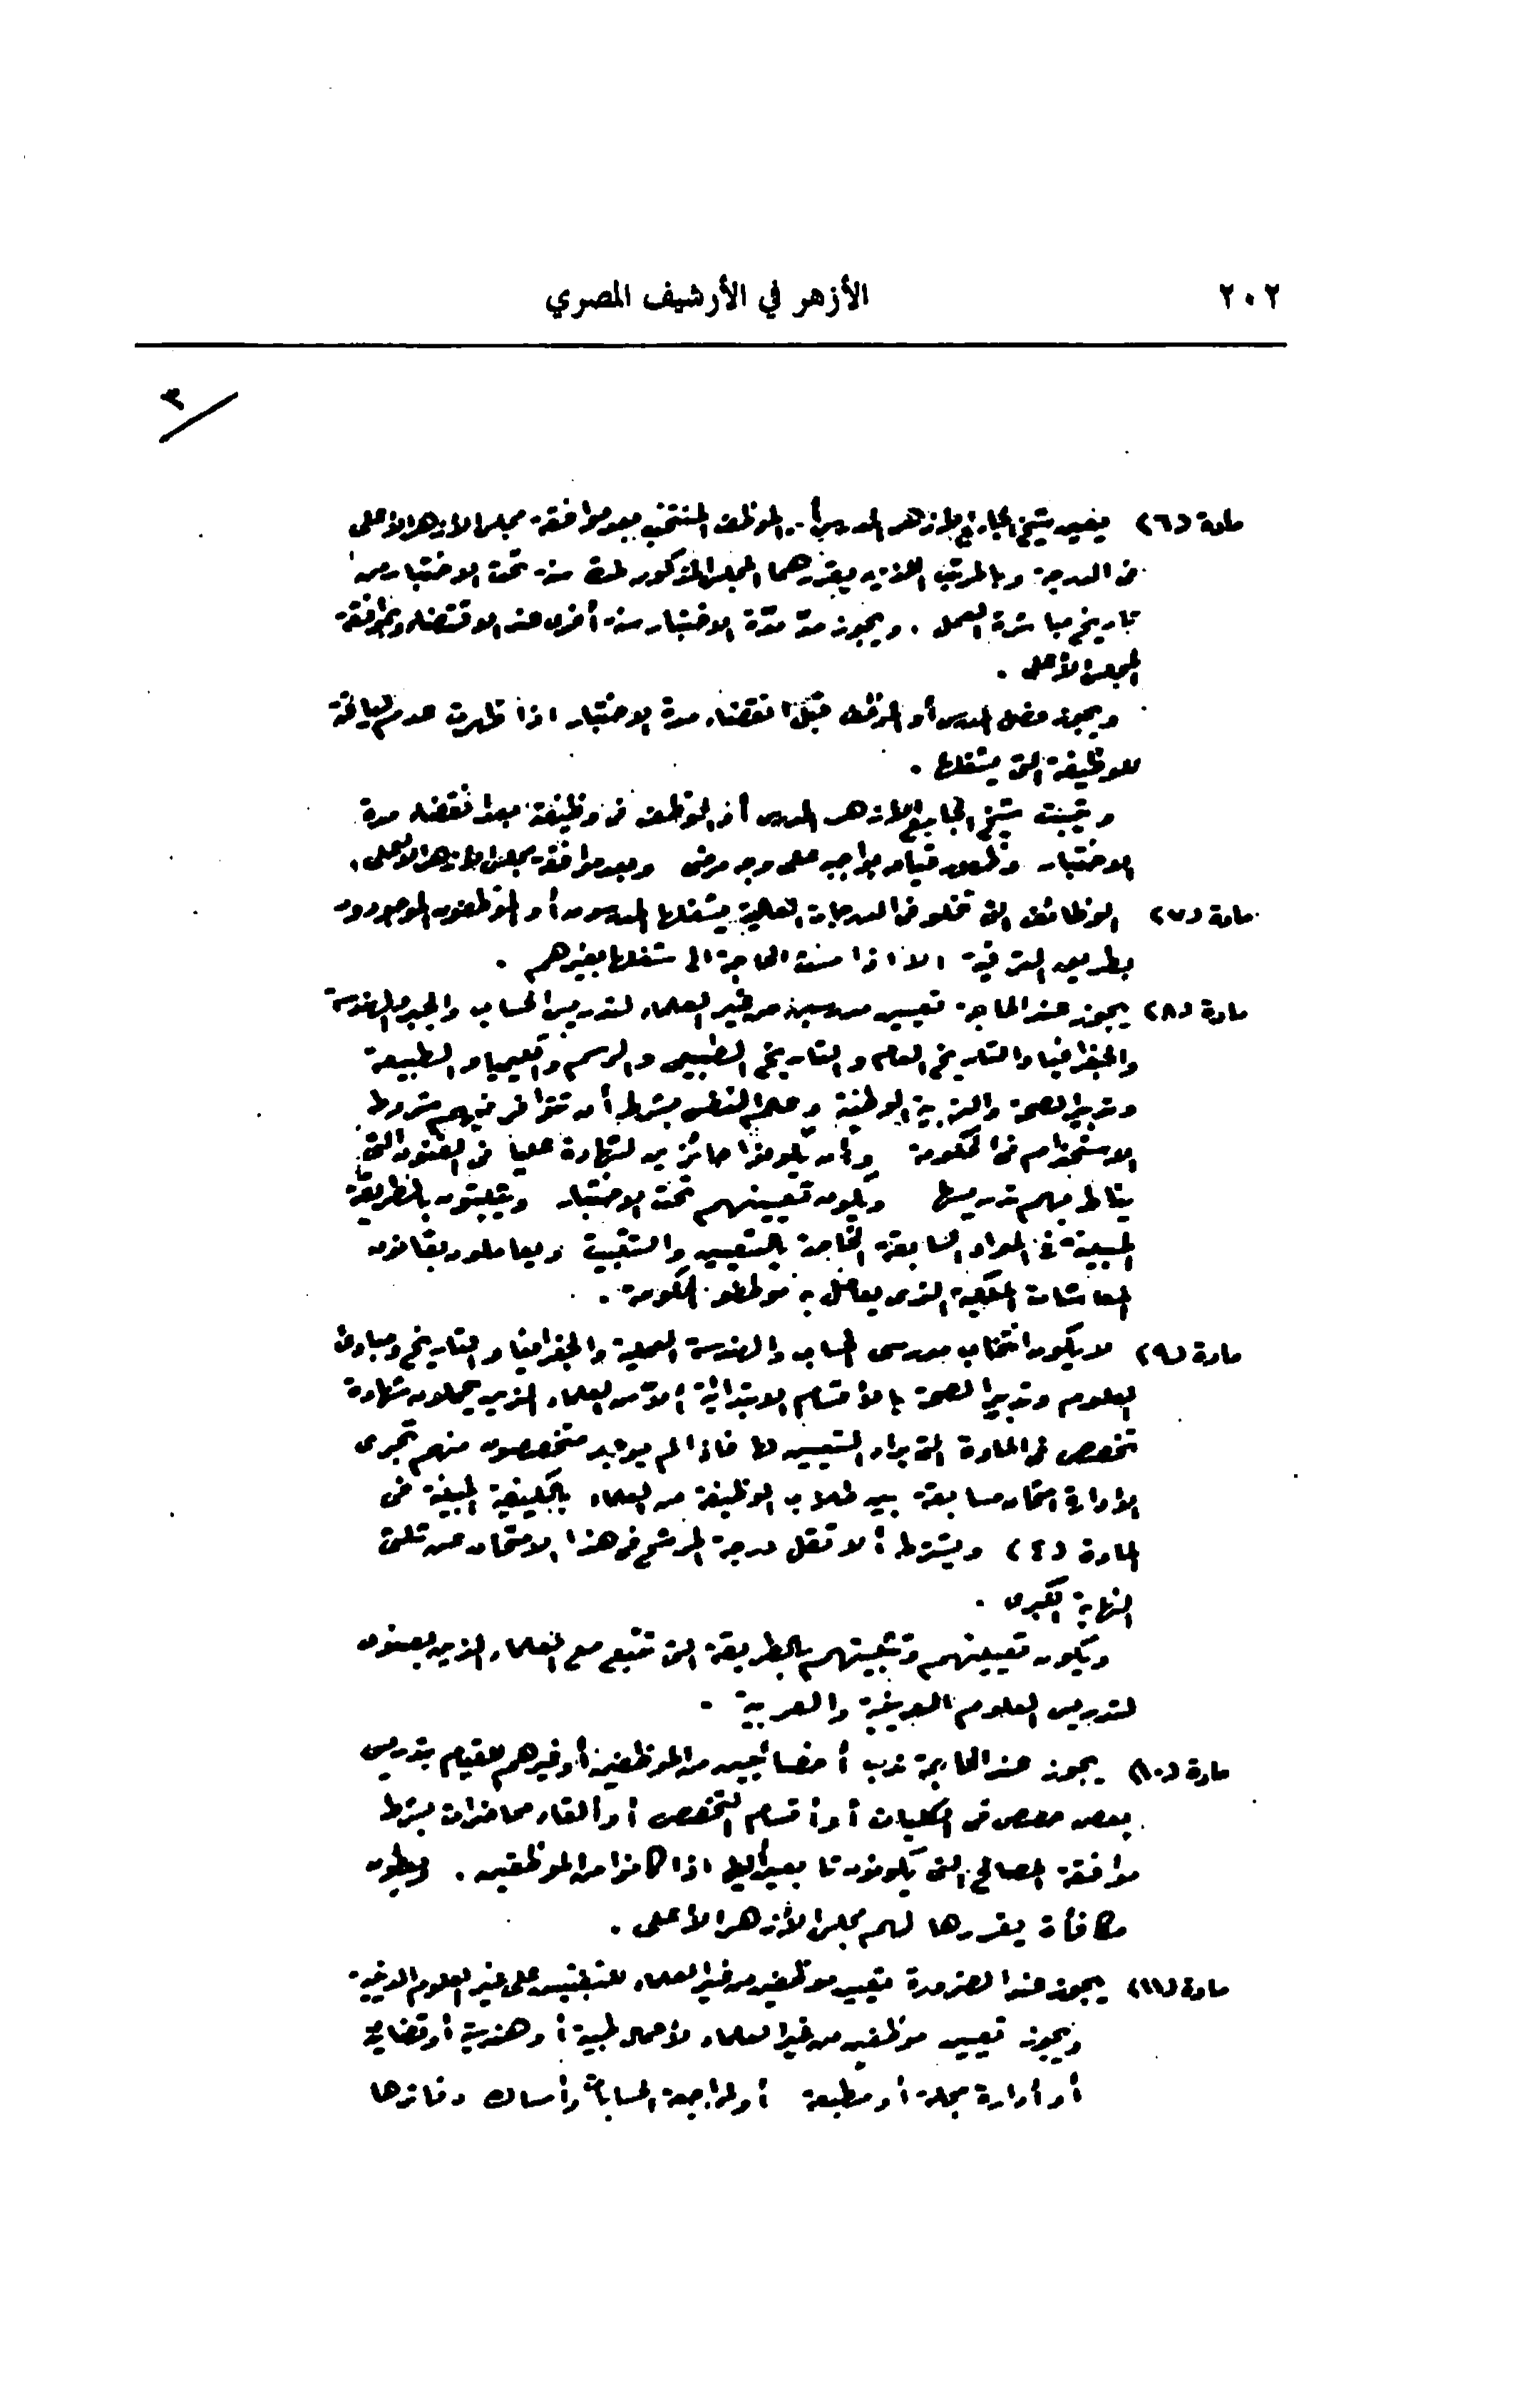 ٢٠٢
الأزهر في الأرشيف المصري
٣
مادة (٦) يعين شيخ الجامع الأزهر المدرس أو الموظف المنتخب بعد موافقة مجلس الأزهر الأعلى
فى الدرجة وبالمرتب اللذين يقررهما المجلس المذكور لمدة سنة تحت الاختبار من
تاريخ مباشرة العمل . ويجوز مدّ مدّة الاختبار سنة أخرى عند الاقتضاء وبموافقة
المجلس الأعلى .
ويجوز فصل المدرس أو الموظف قبل انقضاء مدة الاختبار اذا ظهرت عدم لياقته
للوظيفة التى يشغلها .
ويثبت شيخ الجامع الأزهر المدرس أو الموظف فى وظيفته بعد انقضاء مدة
الاختبار وظهور قيامه بواجبه على وجه مرضى وبعد موافقة مجلس الأزهر الأعلى .
مادة (٧) الوظائف التى تخلو فى الدرجات العالية يشغلها المدرسون أو الموظفون الموجودون
بطريق الترقية الا اذا مست الحاجة الى شغلها بغيرهم .
مادة (٨) يجوز عند الحاجة تعيين مدرسين من غير العلماء لتدريس الحساب والجبر والهندسة
والجغرافيا والتاريخ العام والتاريخ الطبيعى والرسم والكيميا والطبيعة
وتدبير الصحة والتربية الوطنية وعلم النفس بشرط أن تتوافر فيهم شروط
الاستخدام فى الحكومة وأن يكونوا حائزين لشهادة عليا فى الفنون التى
يناط بهم تدريسها ويكون تعيينهم تحت الاختبار ويثبتون بالطريقة
المبينة فى المواد السابقة الخاصة بالتعيين والتثبيت ويعاملون بقانون
المعاشات الملكية الذى يعامل به موظفو الحكومة .
مادة (٩) لا يكون انتخاب مدرسى الحساب والهندسة العملية والجغرافيا والتاريخ ومبادئ
العلوم وتدبير الصحة بالأقسام الابتدائية إلا من العلماء الذين يحملون شهادة
تخصص فى المادة التى يراد التعيين لها فاذا لم يوجد متخصصون منهم تجرى
الإدارة امتحان مسابقة بين طلاب الوظيفة من العلماء بالكيفية المبينة فى
المادة (٤) ويشترط ألا تقل درجة المرشح فى هذا الامتحان عن ثلثى
النهاية الكبرى .
ويكون تعيينهم وتثبيتهم بالطريقة التى تتبع مع العلماء الذين يعينون
لتدريس العلوم الدينية والعربية .
مادة (١٠) يجوز عند الحاجة ندب أخصائيين من الموظفين أو غيرهم للقيام بتدريس
بعض حصص فى الكليات أو أقسام التخصص أو القاء محاضرات بشرط
موافقة المصالح التى يكونون تابعين إليها اذا كانوا من الموظفين . ويعطون
مكافأة يقررها لهم مجلس الأزهر الأعلى .
مادة (١١) يجوز عند الضرورة تعيين موظفين من غير العلماء للتفتيش على غير العلوم الدينية
ويجوز تعيين موظفين من غير العلماء لأعمال طبية أو هندسية أو قضائية
أو إدارة مجلة أو مطبعة أو لمراجعة الحسابات وأمساك دفاترها